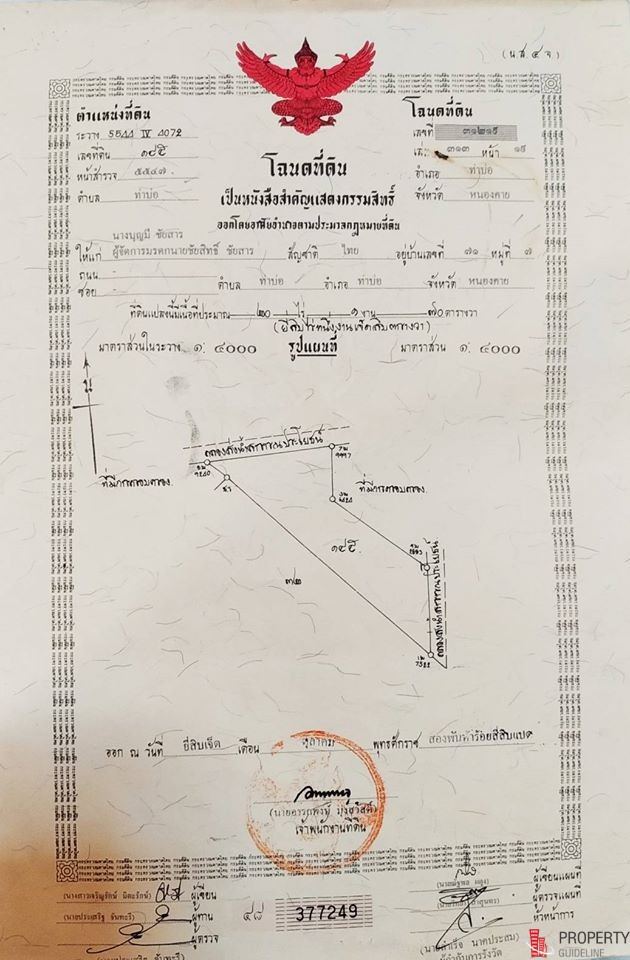 (น.ส. ๔ จ.)
ตำแหน่งที่ดิน
ระวาง 5544 IV 4072
เลขที่ดิน ๑๔๕
หน้าสำรวจ ๕๕๔๗
ตำบล ท่าบ่อ
โฉนดที่ดิน
เลขที่ ๓๑๒๑๕
เล่ม ๓๑๓ หน้า ๑๕
อำเภอ ท่าบ่อ
จังหวัด หนองคาย
โฉนดที่ดิน
เป็นหนังสือสำคัญแสดงกรรมสิทธิ์
ออกโดยอาศัยอำนาจตามประมวลกฎหมายที่ดิน
นางบุญมี ชัยสาร
ให้แก่ ผู้จัดการมรดกนายชัยสิทธิ์ ชัยสาร สัญชาติ ไทย อยู่บ้านเลขที่ ๗๑ หมู่ที่ ๗
ถนน
ซอย - ตำบล ท่าบ่อ อำเภอ ท่าบ่อ จังหวัด หนองคาย
ที่ดินแปลงนี้มีเนื้อที่ประมาณ ๒๐ ไร่ ๑ งาน ๗๐ ตารางวา
(ยี่สิบไร่หนึ่งงานเจ็ดสิบตารางวา)
มาตราส่วนในระวาง ๑: ๔๐๐๐ รูปแผนที่ มาตราส่วน ๑: ๔๐๐๐
น
คลองส่งน้ำสาธารณประโยชน์
ที่มีการครอบครอง
ที่มีการครอบครอง
๑๔๕
๓๒
คลองส่งน้ำสาธารณประโยชน์
ออก ณ วันที่ ยี่สิบเจ็ด เดือน ตุลาคม พุทธศักราช สองพันห้าร้อยสี่สิบแปด
เจ้าพนักงานที่ดิน
ผู้เขียน
ผู้ทาน
ผู้ตรวจ
๔๘ 377249
ผู้เขียนแผนที่
ผู้ตรวจแผนที่
หัวหน้าการ
ผู้กำกับการรังวัด
PROPERTY
GUIDELINE